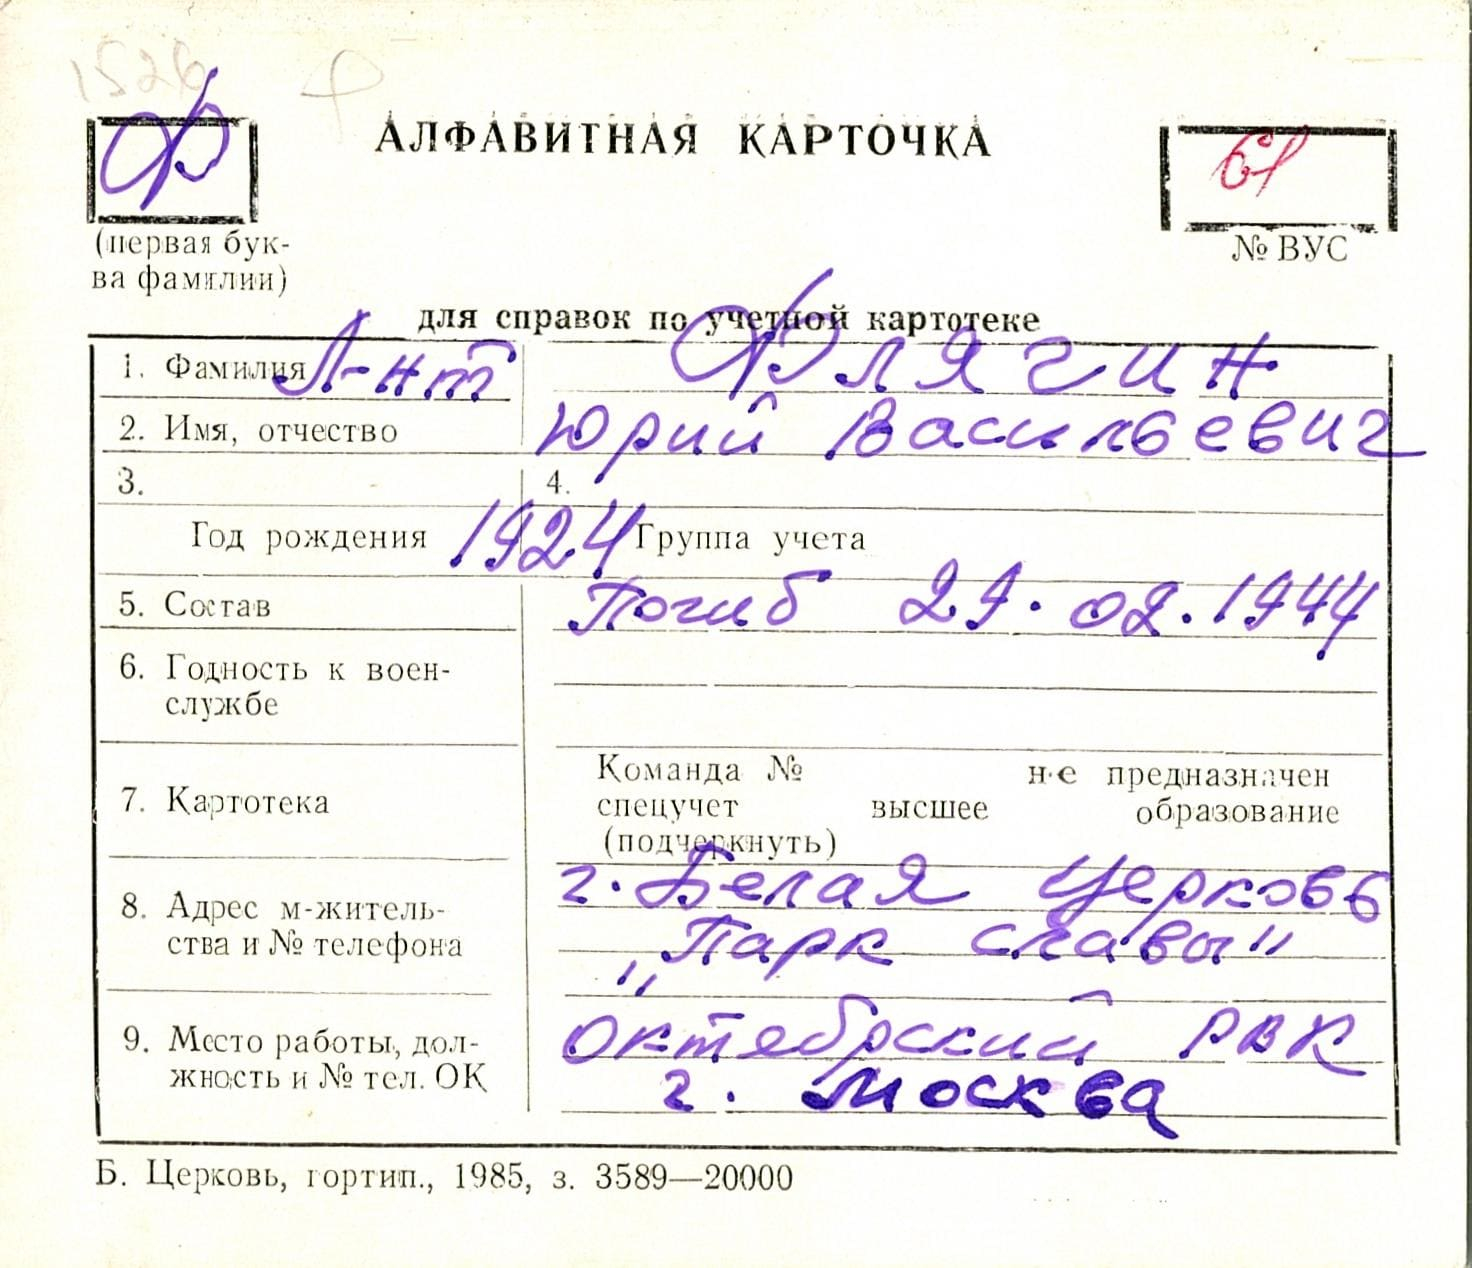 1526 Ф
Ф
АЛФАВИТНАЯ КАРТОЧКА
(первая бук-
ва фамилии)
№ ВУС
для справок по учетной картотеке
1. Фамилия Л-нт Флягин
2. Имя, отчество Юрий Васильевич
3. 4.
Год рождения 1924 Группа учета
5. Состав Погиб 29.02.1944
6. Годность к воен-
службе
Команда № не предназначен
7. Картотека спецучет высшее образование
(подчеркнуть)
8. Адрес м-житель- г. Белая Церковь
ства и № телефона „Парк славы"
9. Место работы, дол- Октебрский РВК
жность и № тел. ОК г. Москва
Б. Церковь, гортип., 1985, з. 3589—20000